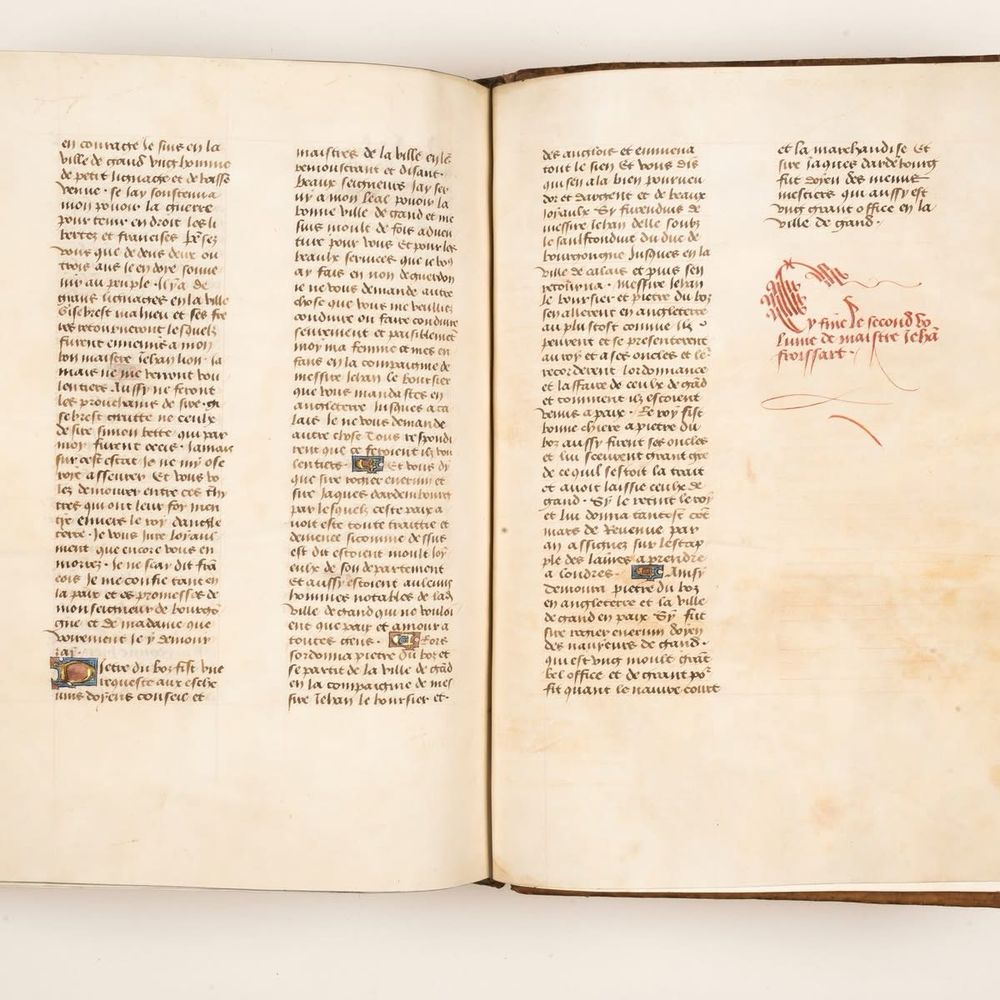 en couraige Je suis en la
ville de gand vng homme
de petit lignaige et de basse
venue · se Jay soustenu a
mon pouoir la guerre
pour tenir en droit les li
bertez et franchises Pensez
vous que de deux deux ou
trois ans Ie en doye souue
nir au peuple · Il y a de
grans lignaiges en la ville
Gisebrest mahieu et ses fre
res retourneront lesquelz
furent ennemis a mon
bon maistre Jehan lion · Ja
mais ne me verront vou
lentiers Aussy ne feront
les prouchains de sire · gi
sebrest grutte ne ceulx
de sire simon bette qui par
moy furent occis · Jamais
sur cest estat Je ne my ose
roye asseurer Et vous vo
lez demourer entre ces tri
tres qui ont leur foy men
tye enuers le roy dangle
terre · Je vous Jure loyaul
ment que encore vous en
morrez · Je ne scay dit fran
cois Je me confie tant en
la paix et es promesses de
monseigneur de bourgo
gne et de madame que
voirement Je y demour
ray ·
Pietre du bos fist vne
requeste aux esche
uins doyens conseil et
maistres de la ville en le
remoustrant et disant ·
beaux seigneurs Jay ser
uy a mon leal pouoir la
bonne ville de gand et me
suis moult de fois aduen
ture pour vous Et pour les
beaulx seruices que Je vous
ay fais en non deguerdon
Je ne vous demande autre
chose que vous me veulliez
conduire ou faire conduire
seurement et paisiblement
moy ma femme et mes en
fans en la compaignie de
messire Jehan le boursier
que vous mandastes en
angleterre Jusques a ca
lais Je ne vous demande
autre chose Tous respondi
rent que ce feroient ilz vou
lentiers · Et vous dy
que sire rogier eurewin et
sire Jaques dardembourg
par lesquelz ceste paix a
uoit este toute traittie et
demenee sicomme dessus
est dit estoient moult Joy
eulx de son departement
Et aussy estoient aulcuns
hommes notables de lad
ville de gand qui ne vouloi
ent que paix et amour a
toutes gens · Lors
sordonna pietre du bos et
se partit de la ville de gand
en la compaignie de mes
sire Jehan le boursier et ·
des anglois et emmena
tout le sien Et vous dis
quil sen ala bien pourueu
dor et dargent et de beaux
Joyaulx Sy furent duis de
messire Jehan delle soubz
le saulfconduit du duc de
bourgoungne Jusques en la
ville de calais et puis sen
retourna · Messire Jehan
le boursier et pietre du bos
sen alerent en angleterre
au plus tost comme Ilz
peurent et se presenterent
au roy et a ses oncles et le
recorderent lordonnance
et laffaire de ceulx de gand
et comment ilz estoient
venus a paix · Le roy fist
bonne chiere a pietre du
bos aussy firent ses oncles
et lui sceurent grant gre
de ce quil sestoit la trait
et auoit laissie ceulx de
gand · Sy le retint le roy
et lui donna tantost cent
mars de Reuenue par
an assignez sur lestap
ple des laines a prendre
a londres · Ainsy
demoura pietre du bos
en angleterre et la ville
de gand en paix Sy fut
sire rogier eurewin doyen
des nauyeurs de gand ·
qui est vng moult grant
bel office et de grant pour
fit quant le nauire court
et la marchandise Et
sire Jaques dardebourg
fut doyen des menus
mestiers qui aussy est
vng grant office en la
ville de gand ·
Cy fine Le second vo
lume de maistre Jehan
froissart ·